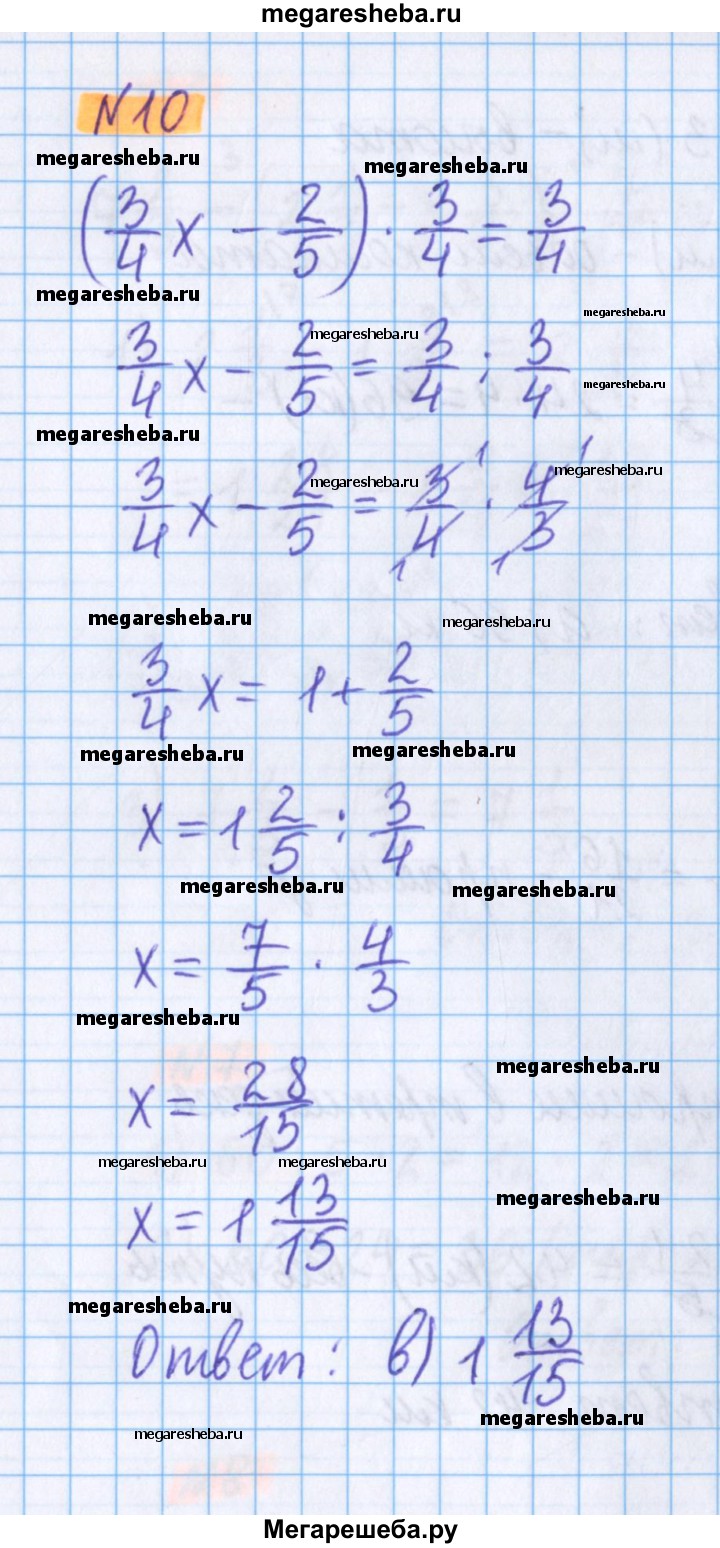 megaresheba.ru
N10
megaresheba.ru megaresheba.ru
(3/4 x - 2/5) · 3/4 = 3/4
megaresheba.ru megaresheba.ru
megaresheba.ru
3/4 x - 2/5 = 3/4 : 3/4
megaresheba.ru
megaresheba.ru
megaresheba.ru megaresheba.ru
3/4 x - 2/5 = 3/4 · 4/3
1 1
1 1
megaresheba.ru megaresheba.ru
3/4 x = 1 + 2/5
megaresheba.ru megaresheba.ru
x = 1 2/5 : 3/4
megaresheba.ru megaresheba.ru
x = 7/5 · 4/3
megaresheba.ru
megaresheba.ru
x = 28/15
megaresheba.ru megaresheba.ru
megaresheba.ru
x = 1 13/15
megaresheba.ru
Ответ: в) 1 13/15
megaresheba.ru
megaresheba.ru
Мегарешеба.ру